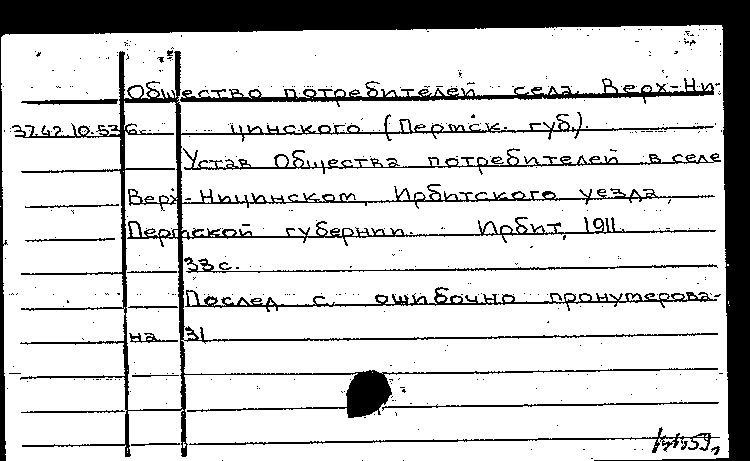 Общество потребителей села Верх-Ни-
37.42.10.536. цинского (Пермск. губ.).
Устав Общества потребителей в селе
Верх-Ницинском, Ирбитского уезда,
Пермской губернии. Ирбит, 1911.
33 с.
Послед. с. ошибочно пронумерова-
на 31